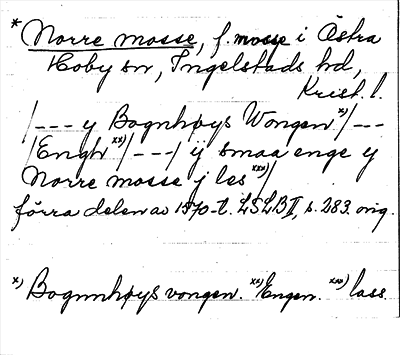 * Norre mosse, f. mosse i Östra
Hoby sn, Ingelstads hd,
Krist. l.
/--- y Bognhøys Wongen x)/---
/Engh xx)/---/ ij smaa enge y
Norre mosse j les xxx)/
förra delen av 1570-t. LSLB II, s. 283. orig.
x) Bognnhøys vongen. xx) Engen. xxx) lass.